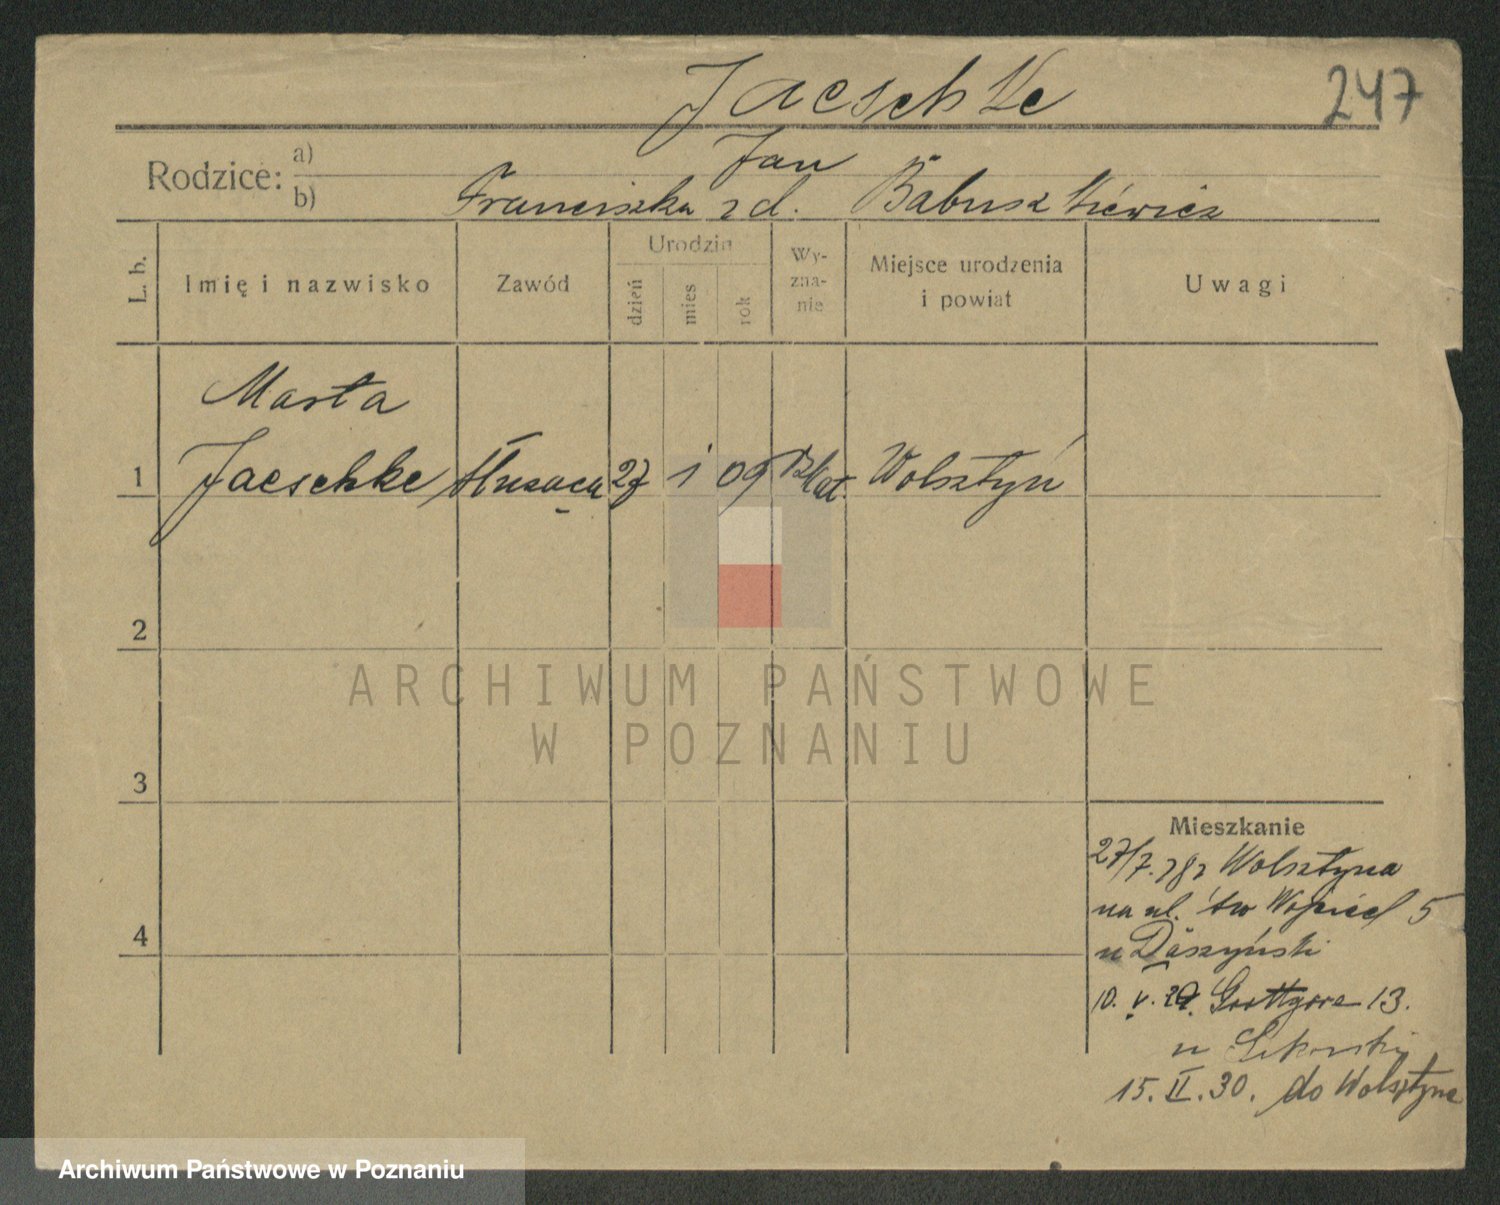 Jaeschke
247
Rodzice:
a) Jan
b) Franciszka z d. Babuszkiewicz
L. b.
Imię i nazwisko
Zawód
Urodzin
dzień
mies
rok
Wy-
zna-
nie
Miejsce urodzenia
i powiat
Uwagi
Marta
1 Jaeschke służąca 27 1 09 Rzkat. Wolsztyń
2
ARCHIWUM PAŃSTWOWE
W POZNANIU
3
Mieszkanie
27/7.28 z Wolsztyna
na ul. św Wojciech 5
4
u Daszyński
10. V. 29. Grottgera 13.
u
15. II. 30. do Wolsztyna
Archiwum Państwowe w Poznaniu